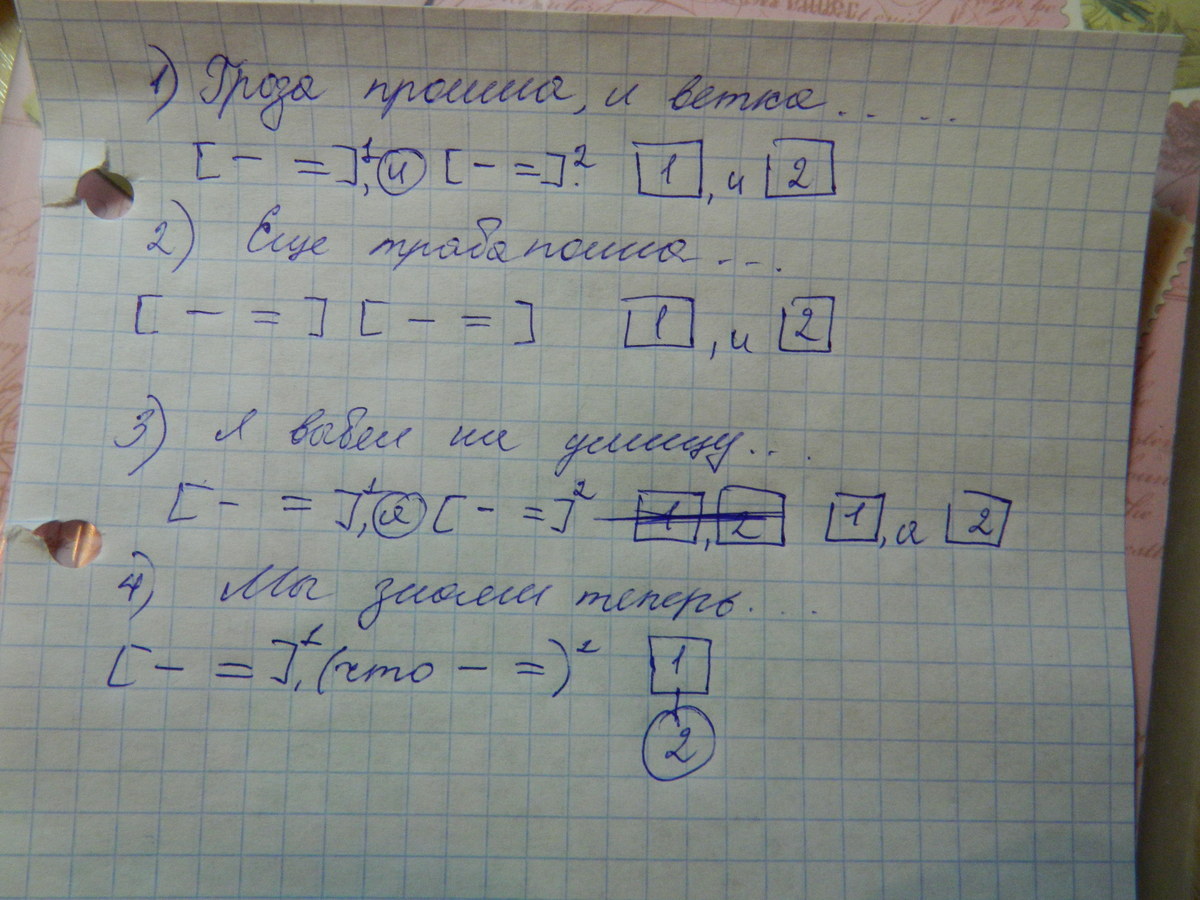 1) Гроза прошла, и ветка.. ..
[ – = ]¹, и [ – = ]². 1 , и 2
2) Еще трава полна ...
[ – = ] [ – = ] 1 , и 2
3) Я вывел на улицу...
[ – = ]¹, а [ – = ]² 1 , 2 1 , а 2
4) Мы знаем теперь....
[ – = ]¹, (что – = )² 1
2